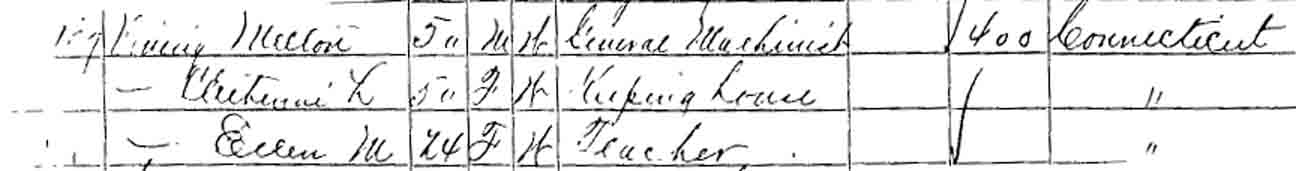 Vining Milton 50 M W General Machinist 400 Connecticut
— L 50 F W Keeping house "
— Ellen M 24 F W Teacher "